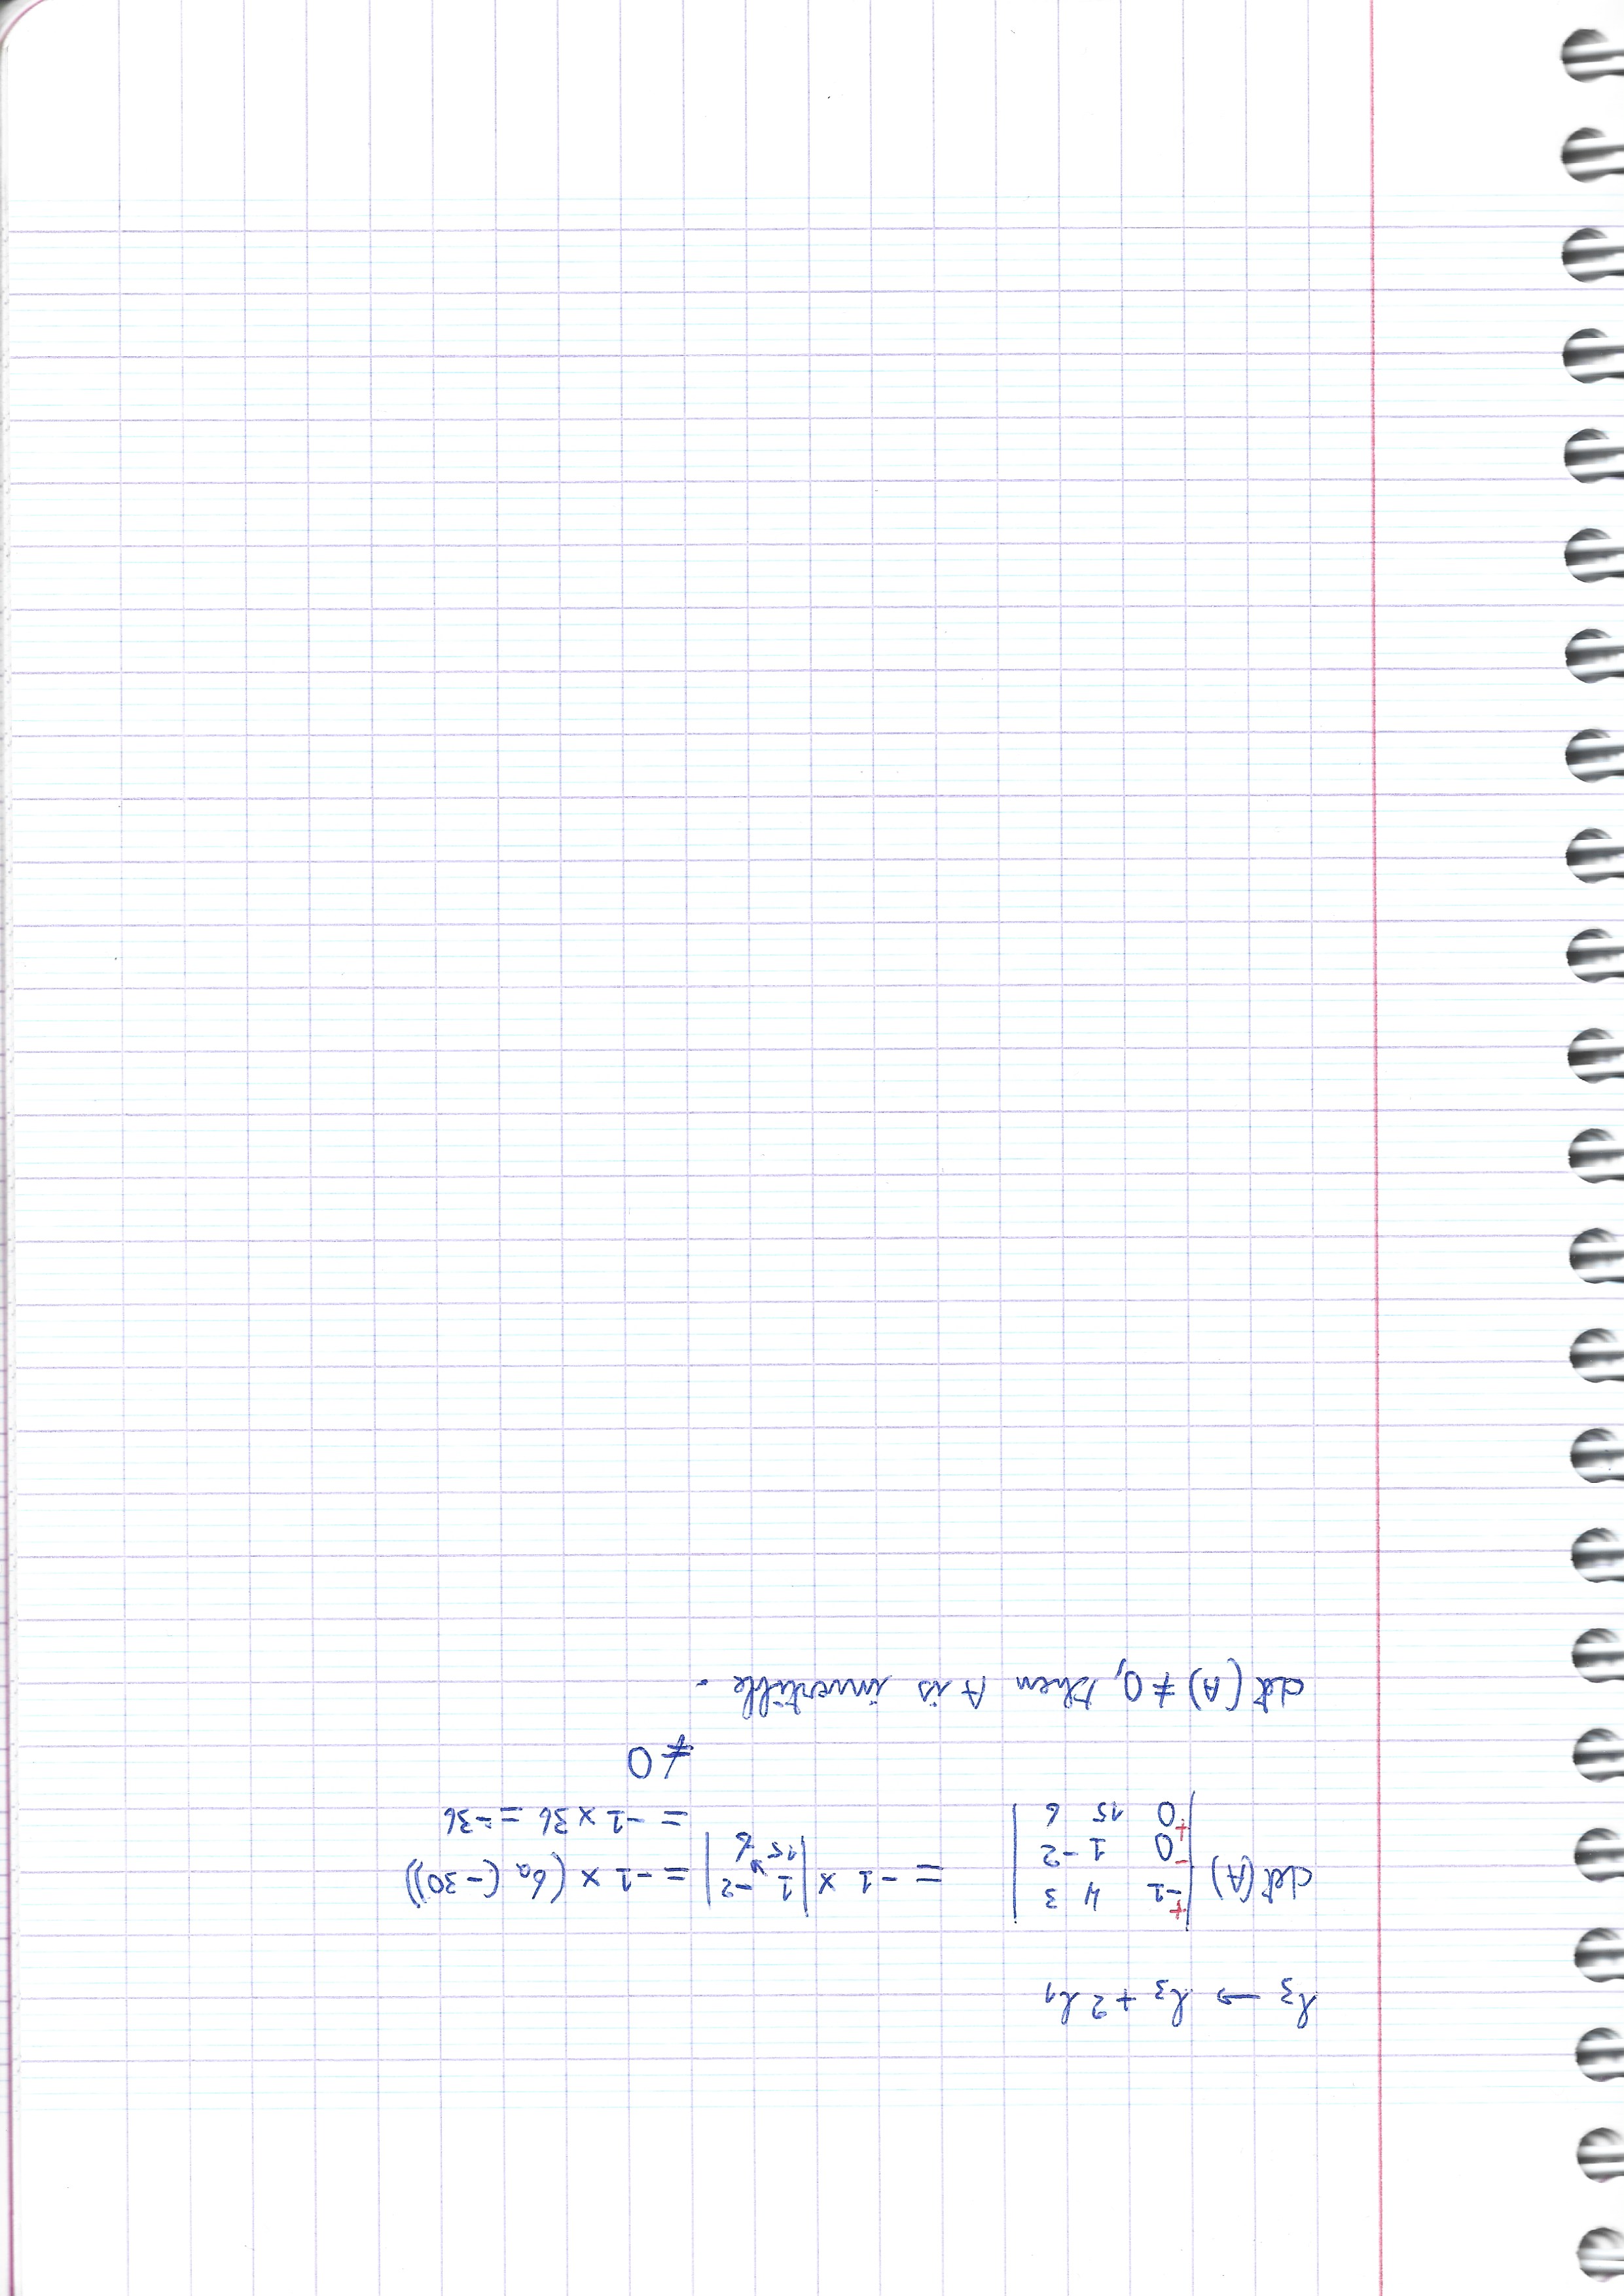 l₃ → l₃ + 2 l₁
det(A) |-1 4 3| = -1 × |1 -2| = -1 × (6 (-30))
|0 1 -2| |15 6|
|0 15 6| = -1 × 36 = -36
≠ 0
det(A) ≠ 0, then A is invertible.
+
-
+